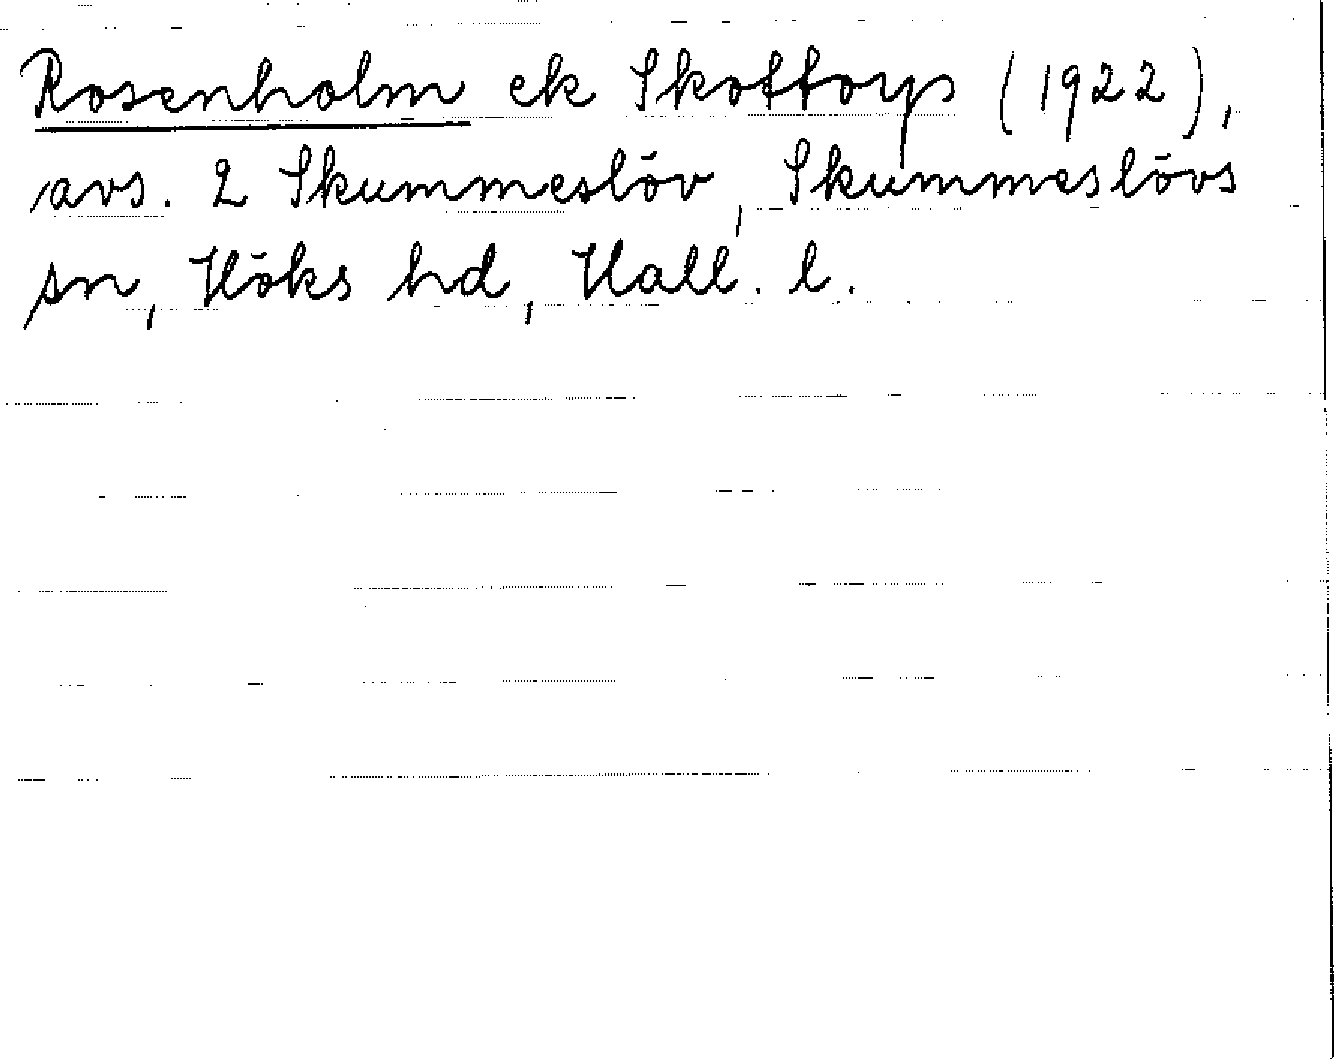 Rosenholm ek Skottorps (1922),
avs. 2 Skummeslöv, Skummeslövs
sn, Höks hd, Hall. l.